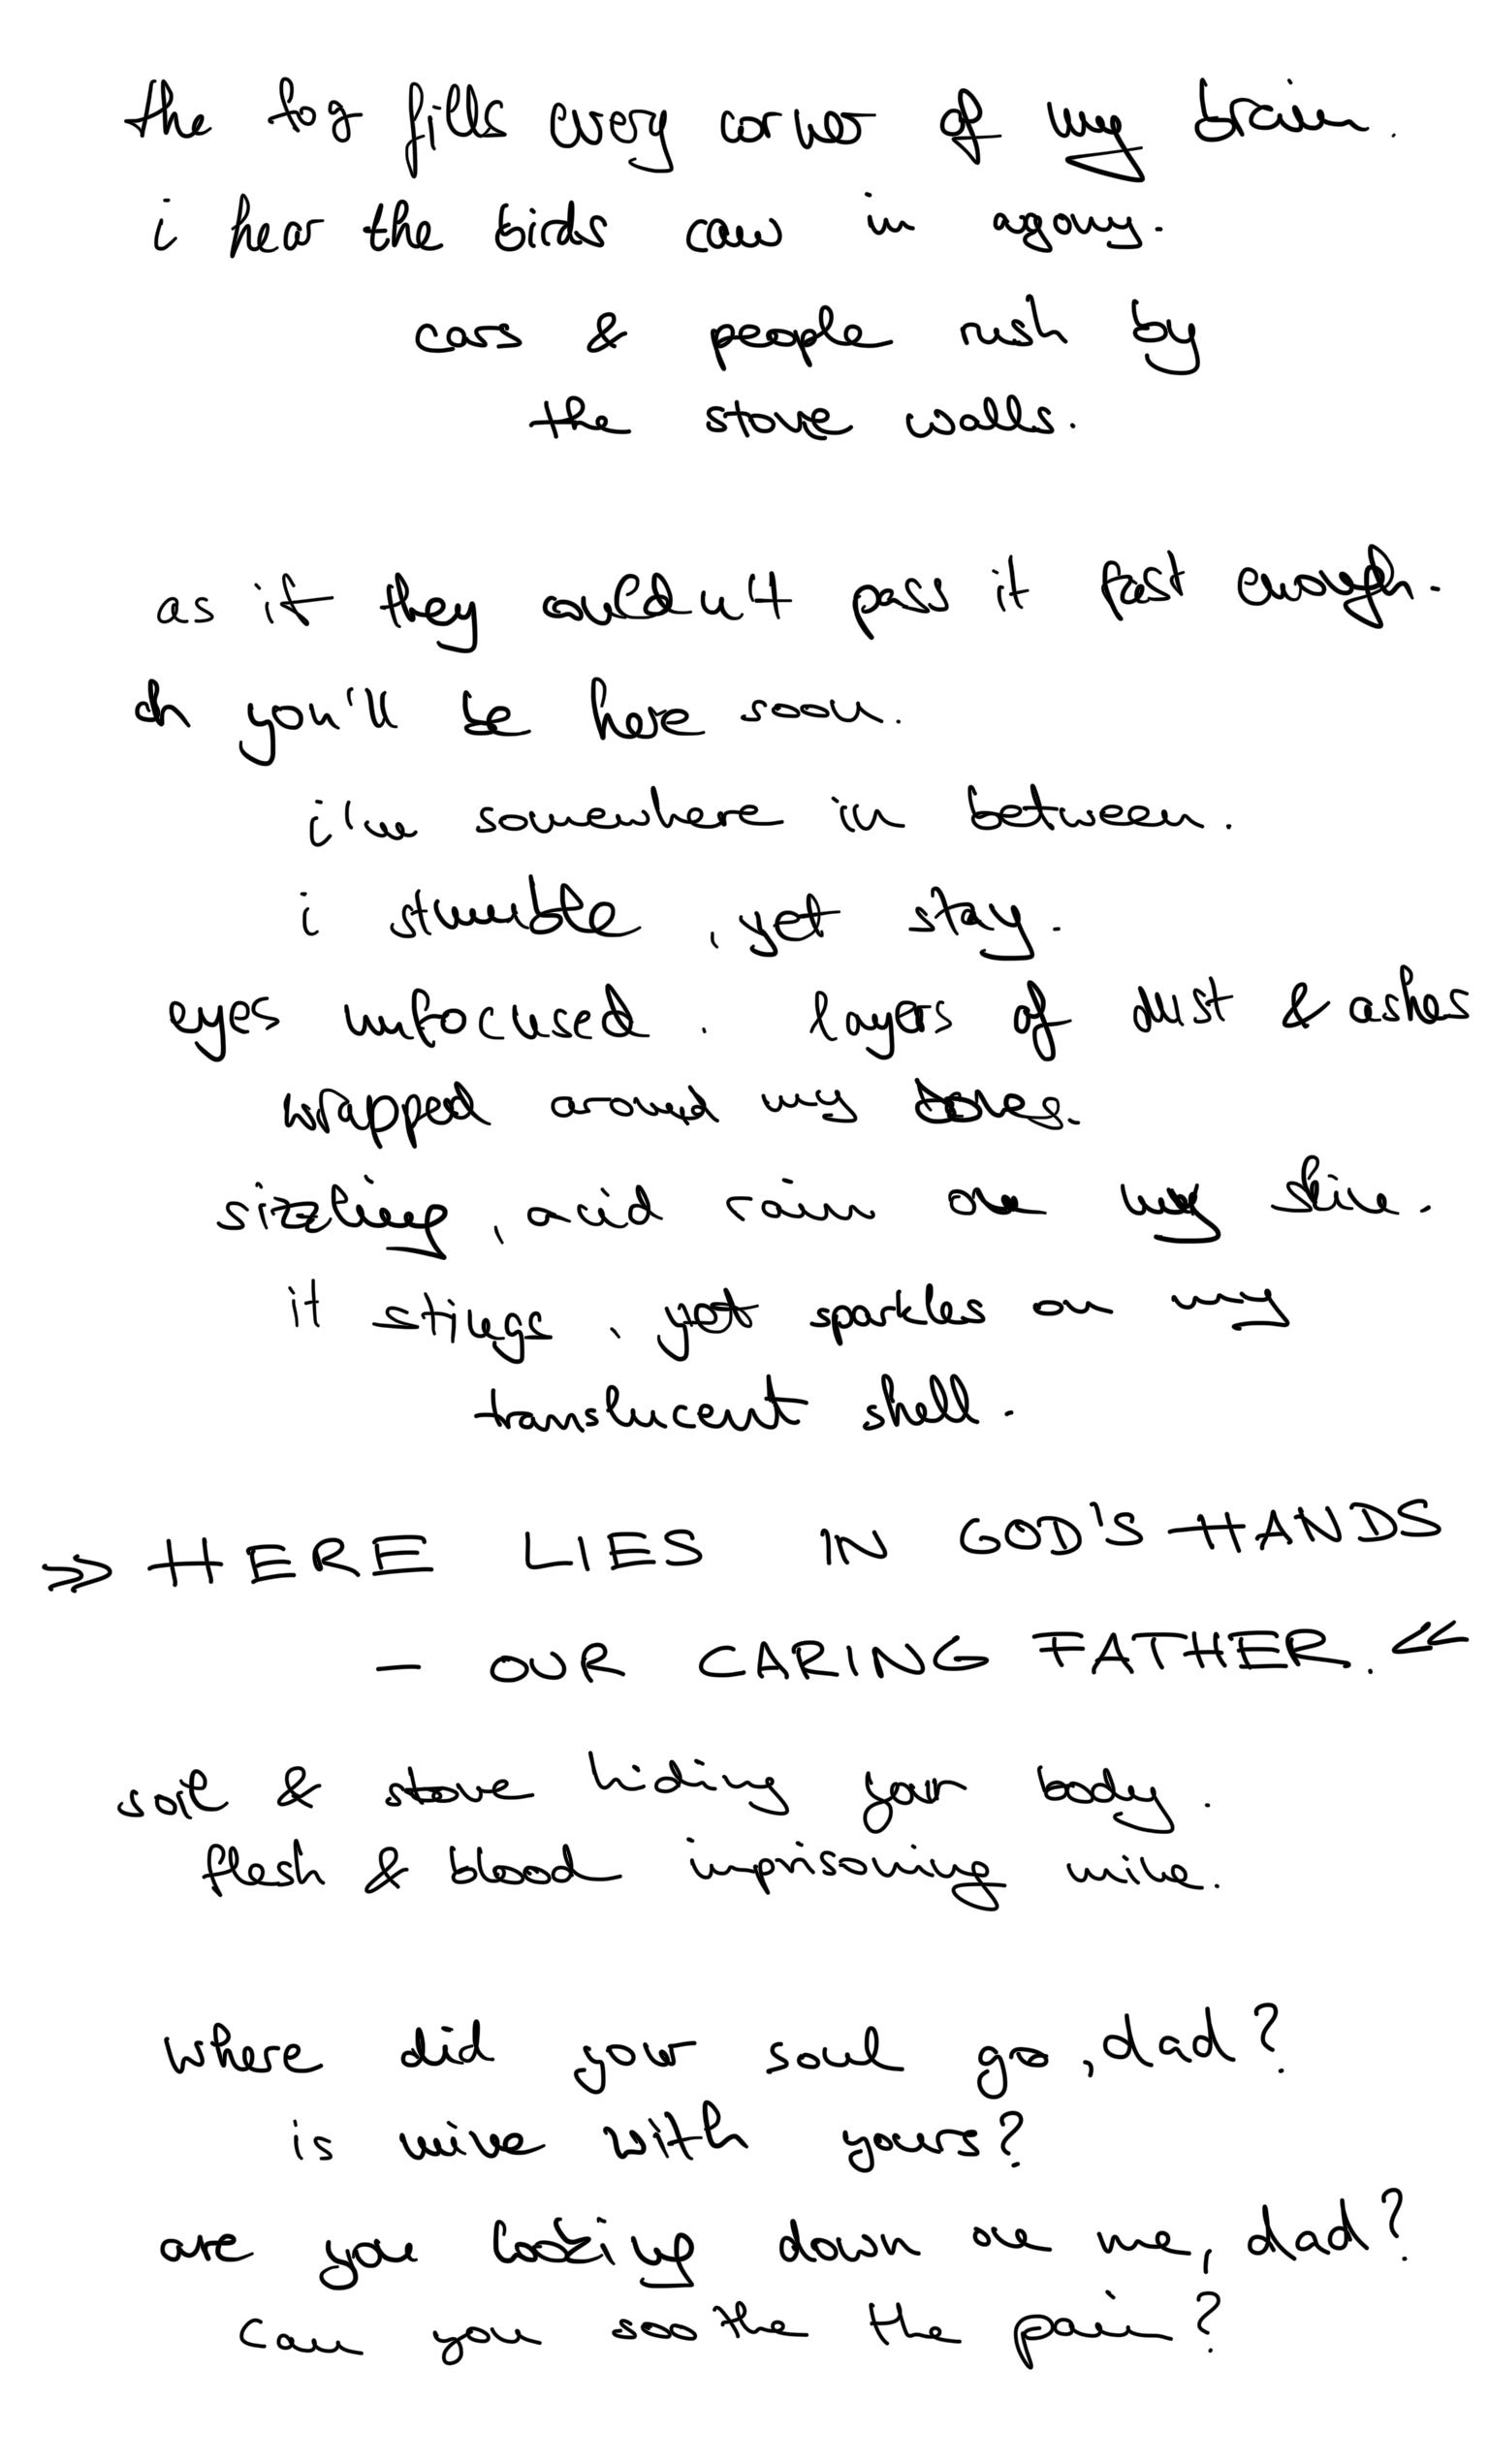 the fog fills every corner of my brain.
i hear the birds caw in agony.
cars & people rush by
the stone walls.
as if they couldn't pass it fast enough.
oh you'll be here soon.
i'm somewhere in between.
i stumble, yet stay.
eyes unfocused. layers of dust & ashes
wrapped around my bones.
sizzling, acid rain on my skin.
it stings, yet sparkles on my
translucent shell.
» HERE LIES IN GOD'S HANDS
— OUR CARING FATHER. «
soil & stone hiding your body.
flesh & blood imprisoning mine.
where did your soul go, dad?
is mine with yours?
are you looking down on me, dad?
can you soothe the pain?